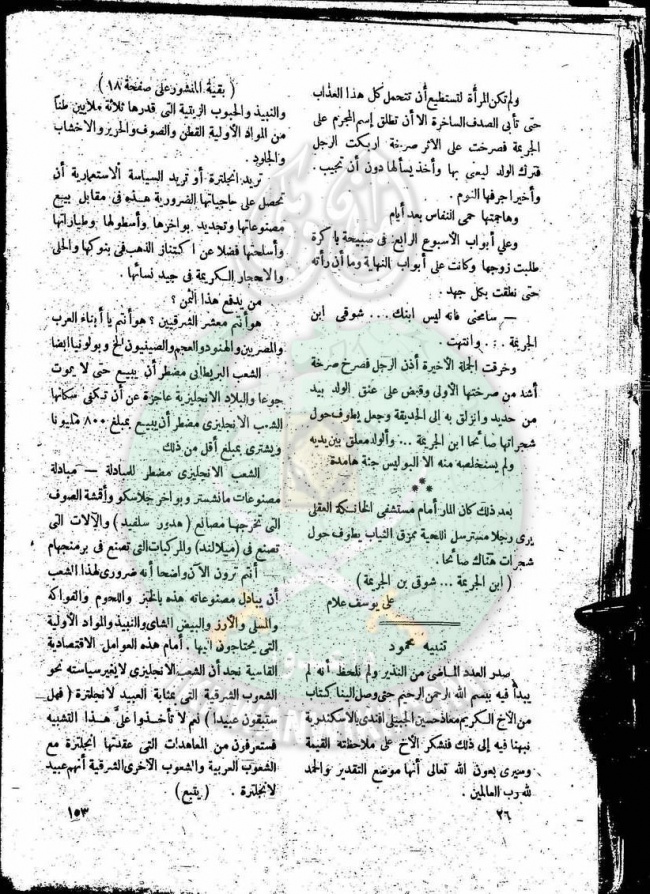 ولم تكن المرأة لتستطيع أن تتحمل كل هذا العذاب
حتى تأبى الصدف الساخرة الا أن تطلق إسم المجرم على
الجريمة فصرخت على الاثر صرخة اربكت الرجل
فترك الولد ليعنى بها وأخذ يسألها دون أن تجيب .
وأخيرا جرفها النوم .
وهاجمتها حمى النفاس بعد أيام
وعلي أبواب الأسبوع الرابع فى صبيحة باكرة
طلبت زوجها وكانت على أبواب النهاية وما أن رأته
حتى نطقت بكل جهد .
— سامحنى فانه ليس ابنك ... شوقى ابن
الجريمة . . . وانتهت .
وخرقت الجملة الأخيرة أذن الرجل فصرخ صرخة
أشد من صرختها الأولى وقبض على عنق الولد بيد
من حديد وانزلق به إلى الحديقة وجعل يطوف حول
شجراتها صائحا ابن الجريمة ... وألولد معلق بين يديه
ولم يستخلصه منه الا البوليس جثة هامدة
* * *
بعد ذلك كان المار أمام مستشفى الخانكة العقلى
يرى رجلا مسترسل اللحية ممزق الثياب يطوف حول
شجرات هناك صائحا .
( ابن الجريمة ... شوقى بن الجريمة )
على يوسف علام
تنبيه محمود
صدر العدد الماضى من النذير ولم نلحظ أنه لم
يبدأ فيه بسم الله الرحمن الرحيم حتى وصل الينا كتاب
من الأخ الكريم معاذ حسين الجبيلى افندى بالاسكندرية
نبهنا فيه إلى ذلك فنشكر الأخ على ملاحظته القيمة
وسيرى بعون الله تعالى أنها موضع التقدير والحمد
لله رب العالمين .
٢٦
( بقية المنشور على صفحة ١٨ )
والنبيذ والحبوب الزيتية التى قدرها ثلاثة ملايين طنا
من المواد الأولية القطن والصوف والحرير والاخشاب
والجلود .
تريد انجلترة أو تريد السياسة الاستعمارية أن
تحصل على حاجياتها الضرورية هذه فى مقابل بيع
مصنوعاتها وتجديد بواخرها وأسطولها وطياراتها
وأسلحتها فضلا عن اكتناز الذهب فى بنوكها والحلى
والاحجار الكريمة في جيد نسائها .
من يدفع هذا الثمن ؟
هو أنتم معشر الشرقيين ؟ هو أنتم يا أبناء العرب
والمصريين والهنود والعجم والصينيون الخ وبولونيا ايضا
الشعب البريطانى مضطر أن يبيع حتى لا يموت
جوعا والبلاد الانجليزية عاجزة عن أن تبكفى سكانها
الشعب الانجليزى مضطر أن يبيع بمبلغ ٨٠٠ مليونا
ويشترى بمبلغ أقل من ذلك
الشعب الانجليزى مضطر للمبادلة — مبادلة
مصنوعات مانشستر وبواخر جلاسكو وأقمشة الصوف
التى تخرجها مصانع ( هدور سلفيد ) والآلات التى
تصنع فى ( ميلاند ) والمركبات التى تصنع فى برمنجهام
أنتم ترون الآن واضحا أنه ضرورى لهذا الشعب
أن يبادل مصنوعاته هذه بالخبز واللحوم والفواكه
والمسلى والأرز والبيض الشاى والنبيذ والمواد الأولية
التى يحتاجون اليها . أمام هذه العوامل الاقتصادية
القاسية نجد أن الشعب الانجليزى لا يغير سياسته نحو
الشعوب الشرقية التى بمثابة العبيد لانجلترة ( فهل
ستبقون عبيدا ) نعم لا تأخذوا علىّ هذا التشبيه
فستعرفون من المعاهدات التى عقدتها انجلترة مع
الشعوب العربية والشعوب الأخرى الشرقية أنهم عبيد
لانجلترة . ( يتبع )
١٥٣